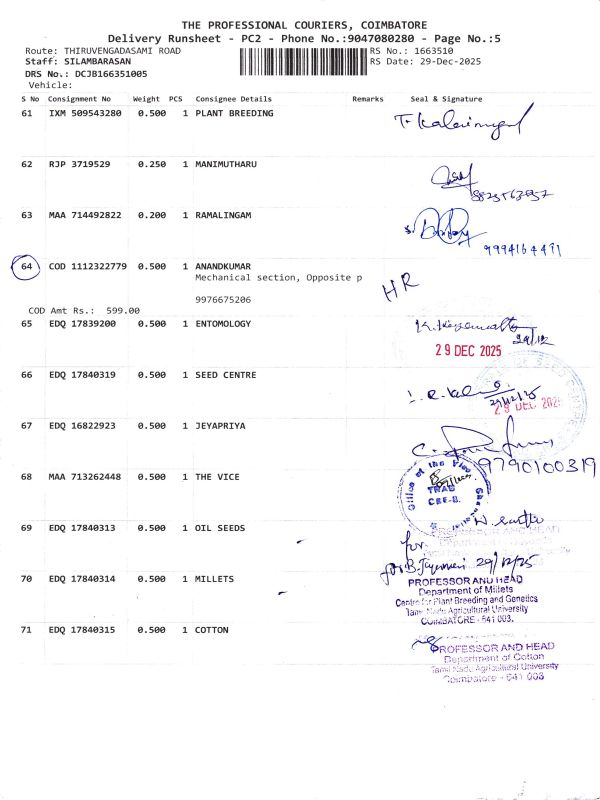 THE PROFESSIONAL COURIERS, COIMBATORE
Delivery Runsheet - PC2 - Phone No.:9047080280 - Page No.:5
Route: THIRUVENGADASAMI ROAD RS No.: 1663510
Staff: SILAMBARASAN RS Date: 29-Dec-2025
DRS No.: DCJB166351005
Vehicle:
S No Consignment No Weight PCS Consignee Details Remarks Seal & Signature
61 IXM 509543280 0.500 1 PLANT BREEDING
62 RJP 3719529 0.250 1 MANIMUTHARU
63 MAA 714492822 0.200 1 RAMALINGAM
9994164491
64 COD 1112322779 0.500 1 ANANDKUMAR
Mechanical section, Opposite p
HR
9976675206
COD Amt Rs.: 599.00
65 EDQ 17839200 0.500 1 ENTOMOLOGY
29/12
29 DEC 2025
66 EDQ 17840319 0.500 1 SEED CENTRE
29/12/25
29 DEC 2025
67 EDQ 16822923 0.500 1 JEYAPRIYA
9790100319
68 MAA 713262448 0.500 1 THE VICE
Office of the Vice
69 EDQ 17840313 0.500 1 OIL SEEDS
PROFESSOR AND HEAD
for
29/12/25
70 EDQ 17840314 0.500 1 MILLETS
PROFESSOR AND HEAD
Department of Millets
Centre for Plant Breeding and Genetics
Tamil Nadu Agricultural University
COIMBATORE - 641 003.
71 EDQ 17840315 0.500 1 COTTON
PROFESSOR AND HEAD
Department of Cotton
Tamil Nadu Agricultural University
Coimbatore - 641 003